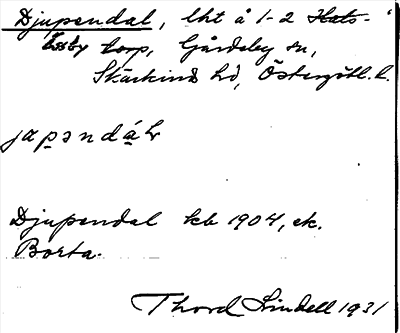 Djupendal, lht å 1-2
torp, Gårdeby sn,
Skärkinds hd, Östergötl. l.
japəndáɫ
Djupendal kb 1904, ek.
Borta.
Thord Lindell 1931